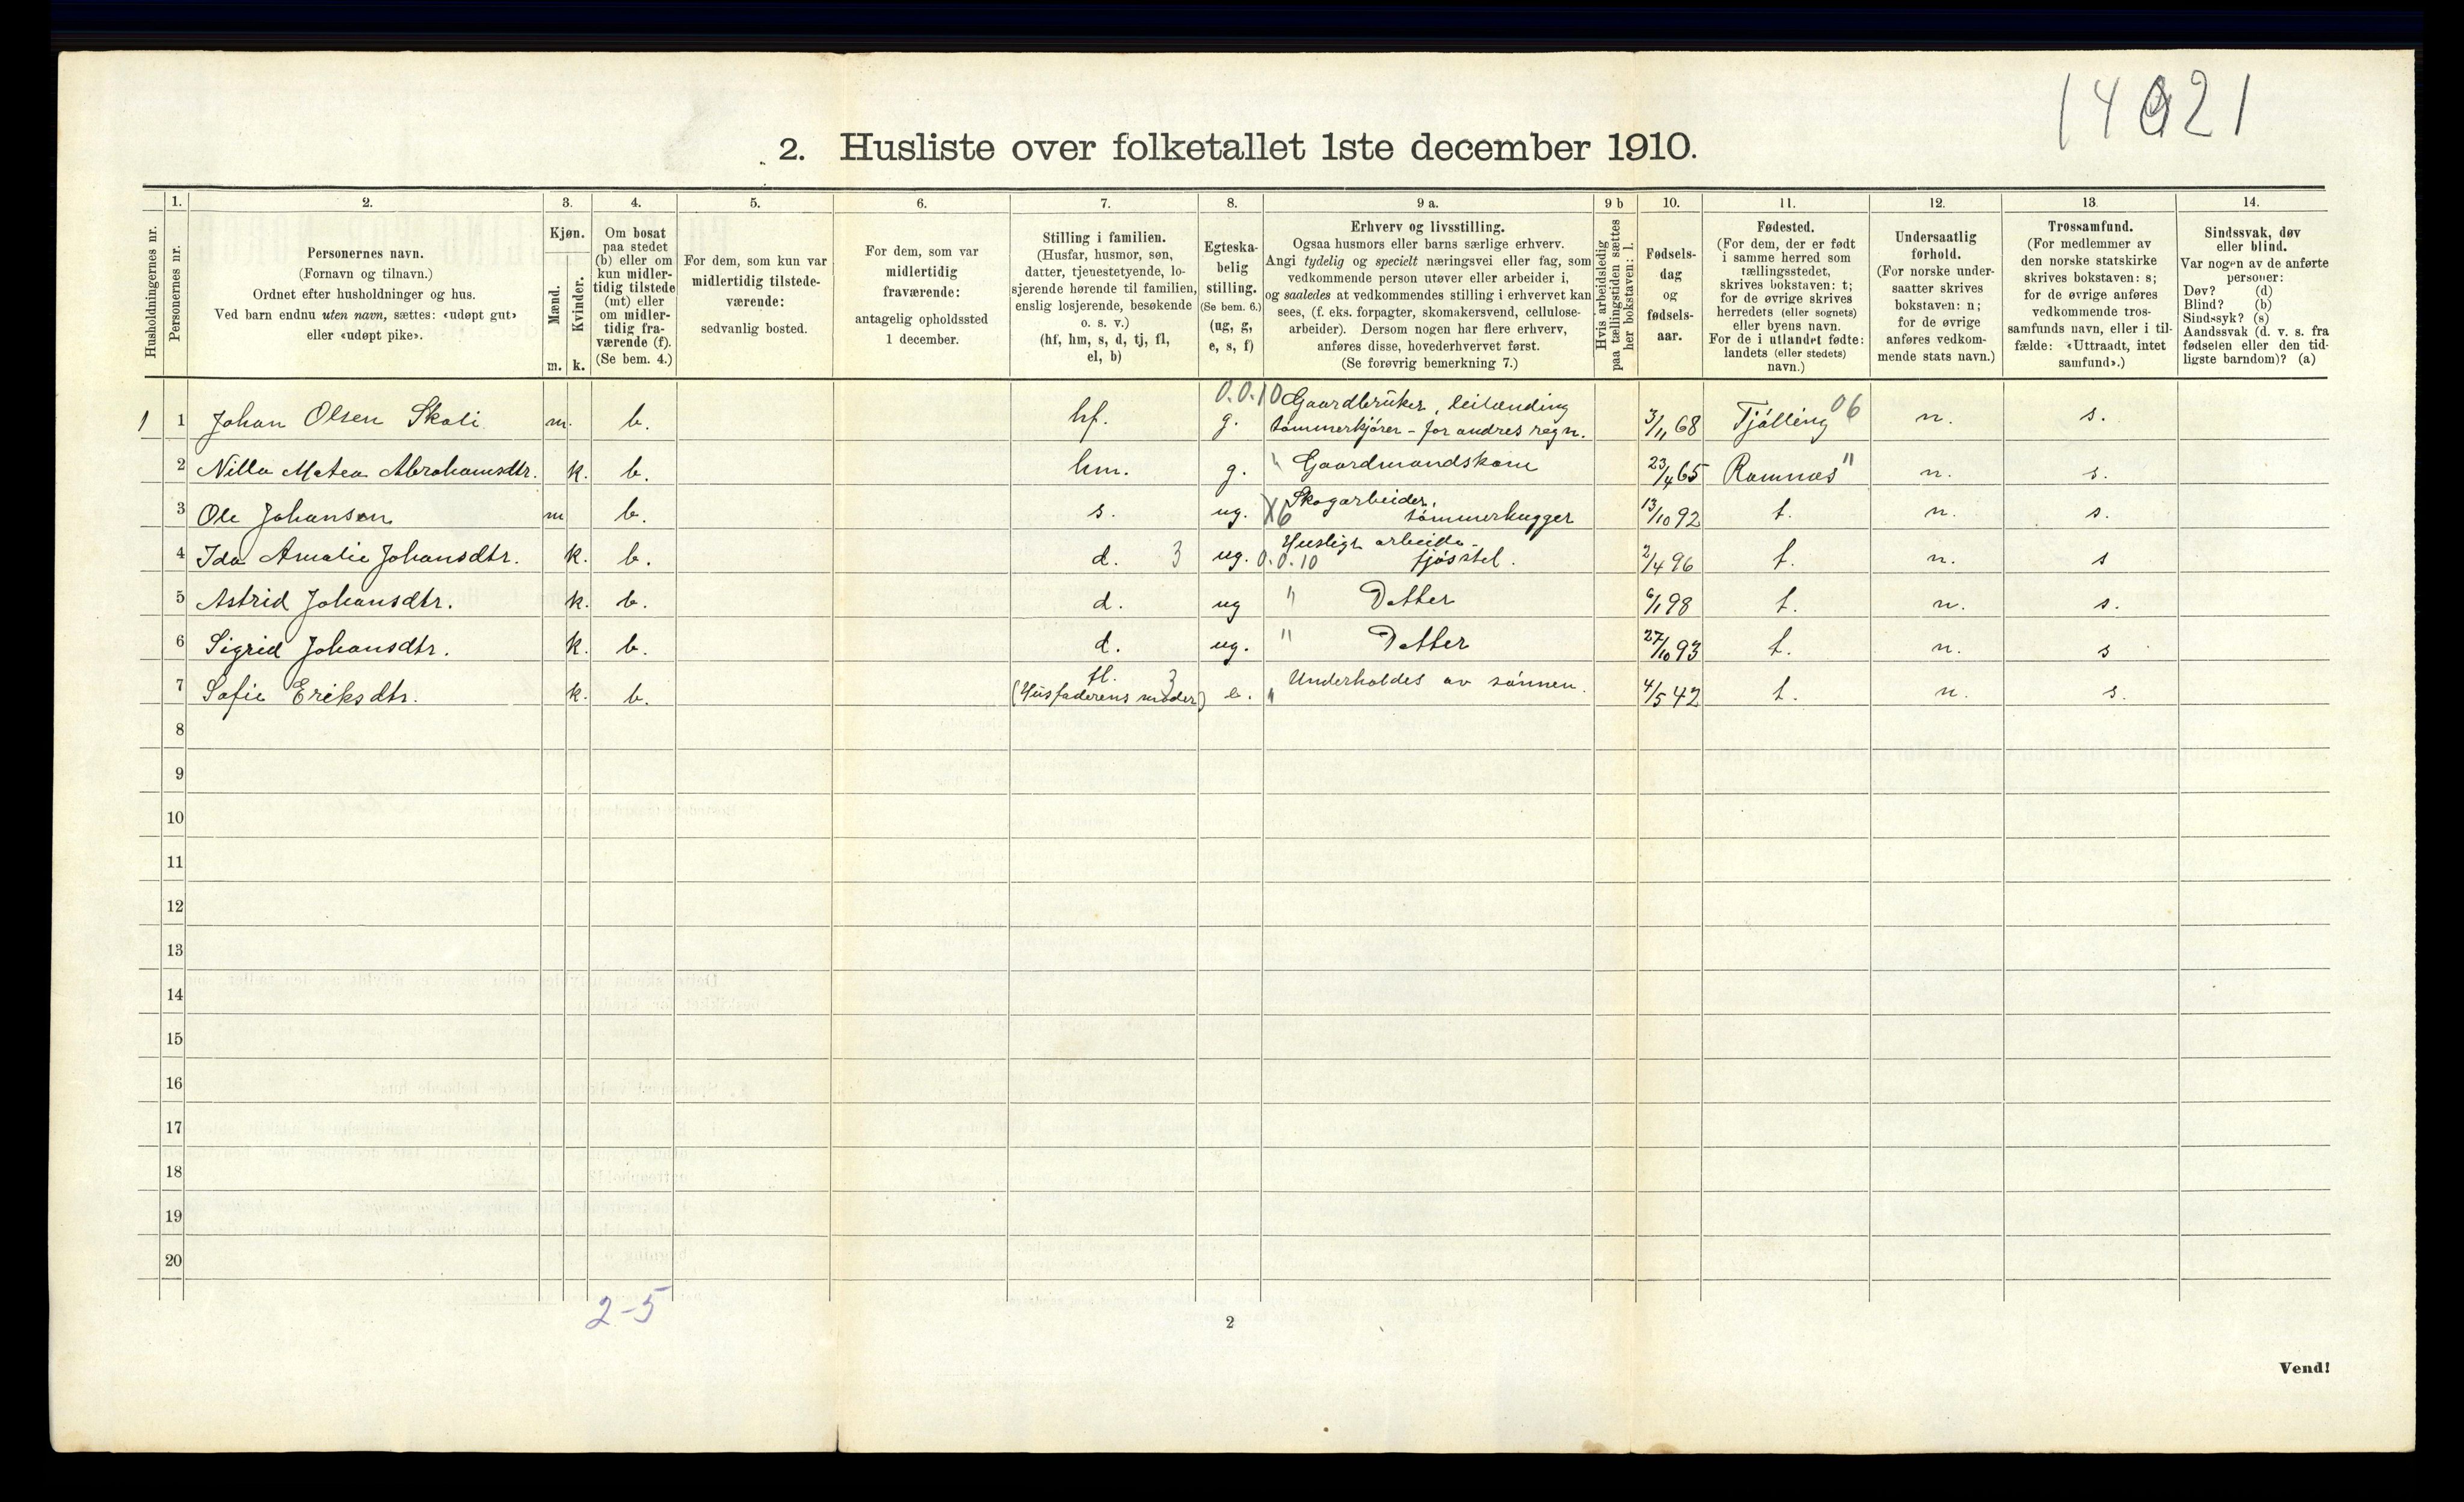 14021
2. Husliste over folketallet 1ste december 1910.
Husholdningernes nr.
1.
Personernes nr.
2.
Personernes navn.
(Fornavn og tilnavn.)
Ordnet efter husholdninger og hus.
Ved barn endnu uten navn, sættes: «udøpt gut»
eller «udøpt pike».
3.
Kjøn.
Mænd.
Kvinder.
m. k.
4.
Om bosat
paa stedet
(b) eller om
kun midler-
tidig tilstede
(mt) eller
om midler-
tidig fra-
værende (f).
(Se bem. 4.)
5.
For dem, som kun var
midlertidig tilstede-
værende:
sedvanlig bosted.
6.
For dem, som var
midlertidig
fraværende:
antagelig opholdssted
1 december.
7.
Stilling i familien.
(Husfar, husmor, søn,
datter, tjenestetyende, lo-
sjerende hørende til familien,
enslig losjerende, besøkende
o. s. v.)
(hf, hm, s, d, tj, fl,
el, b)
8.
Egteska-
belig
stilling.
(Se bem. 6.)
(ug, g,
e, s, f)
9 a.
Erhverv og livsstilling.
Ogsaa husmors eller barns særlige erhverv.
Angi tydelig og specielt næringsvei eller fag, som
vedkommende person utøver eller arbeider i,
og saaledes at vedkommendes stilling i erhvervet kan
sees, (f. eks. forpagter, skomakersvend, cellulose-
arbeider). Dersom nogen har flere erhverv,
anføres disse, hovederhvervet først.
(Se forøvrig bemerkning 7.)
9 b
Hvis arbeidsledig
paa tællingstiden sættes
her bokstaven: l.
10.
Fødsels-
dag
og
fødsels-
aar.
11.
Fødested.
(For dem, der er født
i samme herred som
tællingsstedet,
skrives bokstaven: t;
for de øvrige skrives
herredets (eller sognets)
eller byens navn.
For de i utlandet fødte:
landets (eller stedets)
navn.)
12.
Undersaatlig
forhold.
(For norske under-
saatter skrives
bokstaven: n;
for de øvrige
anføres vedkom-
mende stats navn.)
13.
Trossamfund.
(For medlemmer av
den norske statskirke
skrives bokstaven: s;
for de øvrige anføres
vedkommende tros-
samfunds navn, eller i til-
fælde: «Uttraadt, intet
samfund».)
14.
Sindssvak, døv
eller blind.
Var nogen av de anførte
personer:
Døv? (d)
Blind? (b)
Sindssyk? (s)
Aandssvak (d. v. s. fra
fødselen eller den tid-
ligste barndom)? (a)
1 1 Johan Olsen Skoli m. b. hf. g. 0.0.10 Gaardbruker, leilænding
tømmerkjører - for andres regn. 3/11 68 Tjølling 06 n. s.
2 Nilla Matea Abrahamsdtr. k. b. hm. g. " Gaardmandskone 23/4 65 Ramnæs " n. s.
3 Ole Johansen m b. s. ug. X6 Skogarbeider,
tømmerhugger 13/10 92 t. n. s.
4 Ida Amalie Johansdtr. k. b. d. 3 ug. 0.0.10 Husligt arbeide -
fjøsstel. 2/4 96 t. n. s
5 Astrid Johansdtr. k. b. d. ug " Datter 6/1 98 t. n. s.
6 Sigrid Johansdtr. k. b. d. ug. " Datter 27/10 93 t. n. s
7 Sofie Eriksdtr. k. b. fl. 3
(Husfaderens moder) e. " Underholdes av sønnen. 4/5 42 t. n. s.
8
9
10
11
12
13
14
15
16
17
18
19
20
2-5
2
Vend!